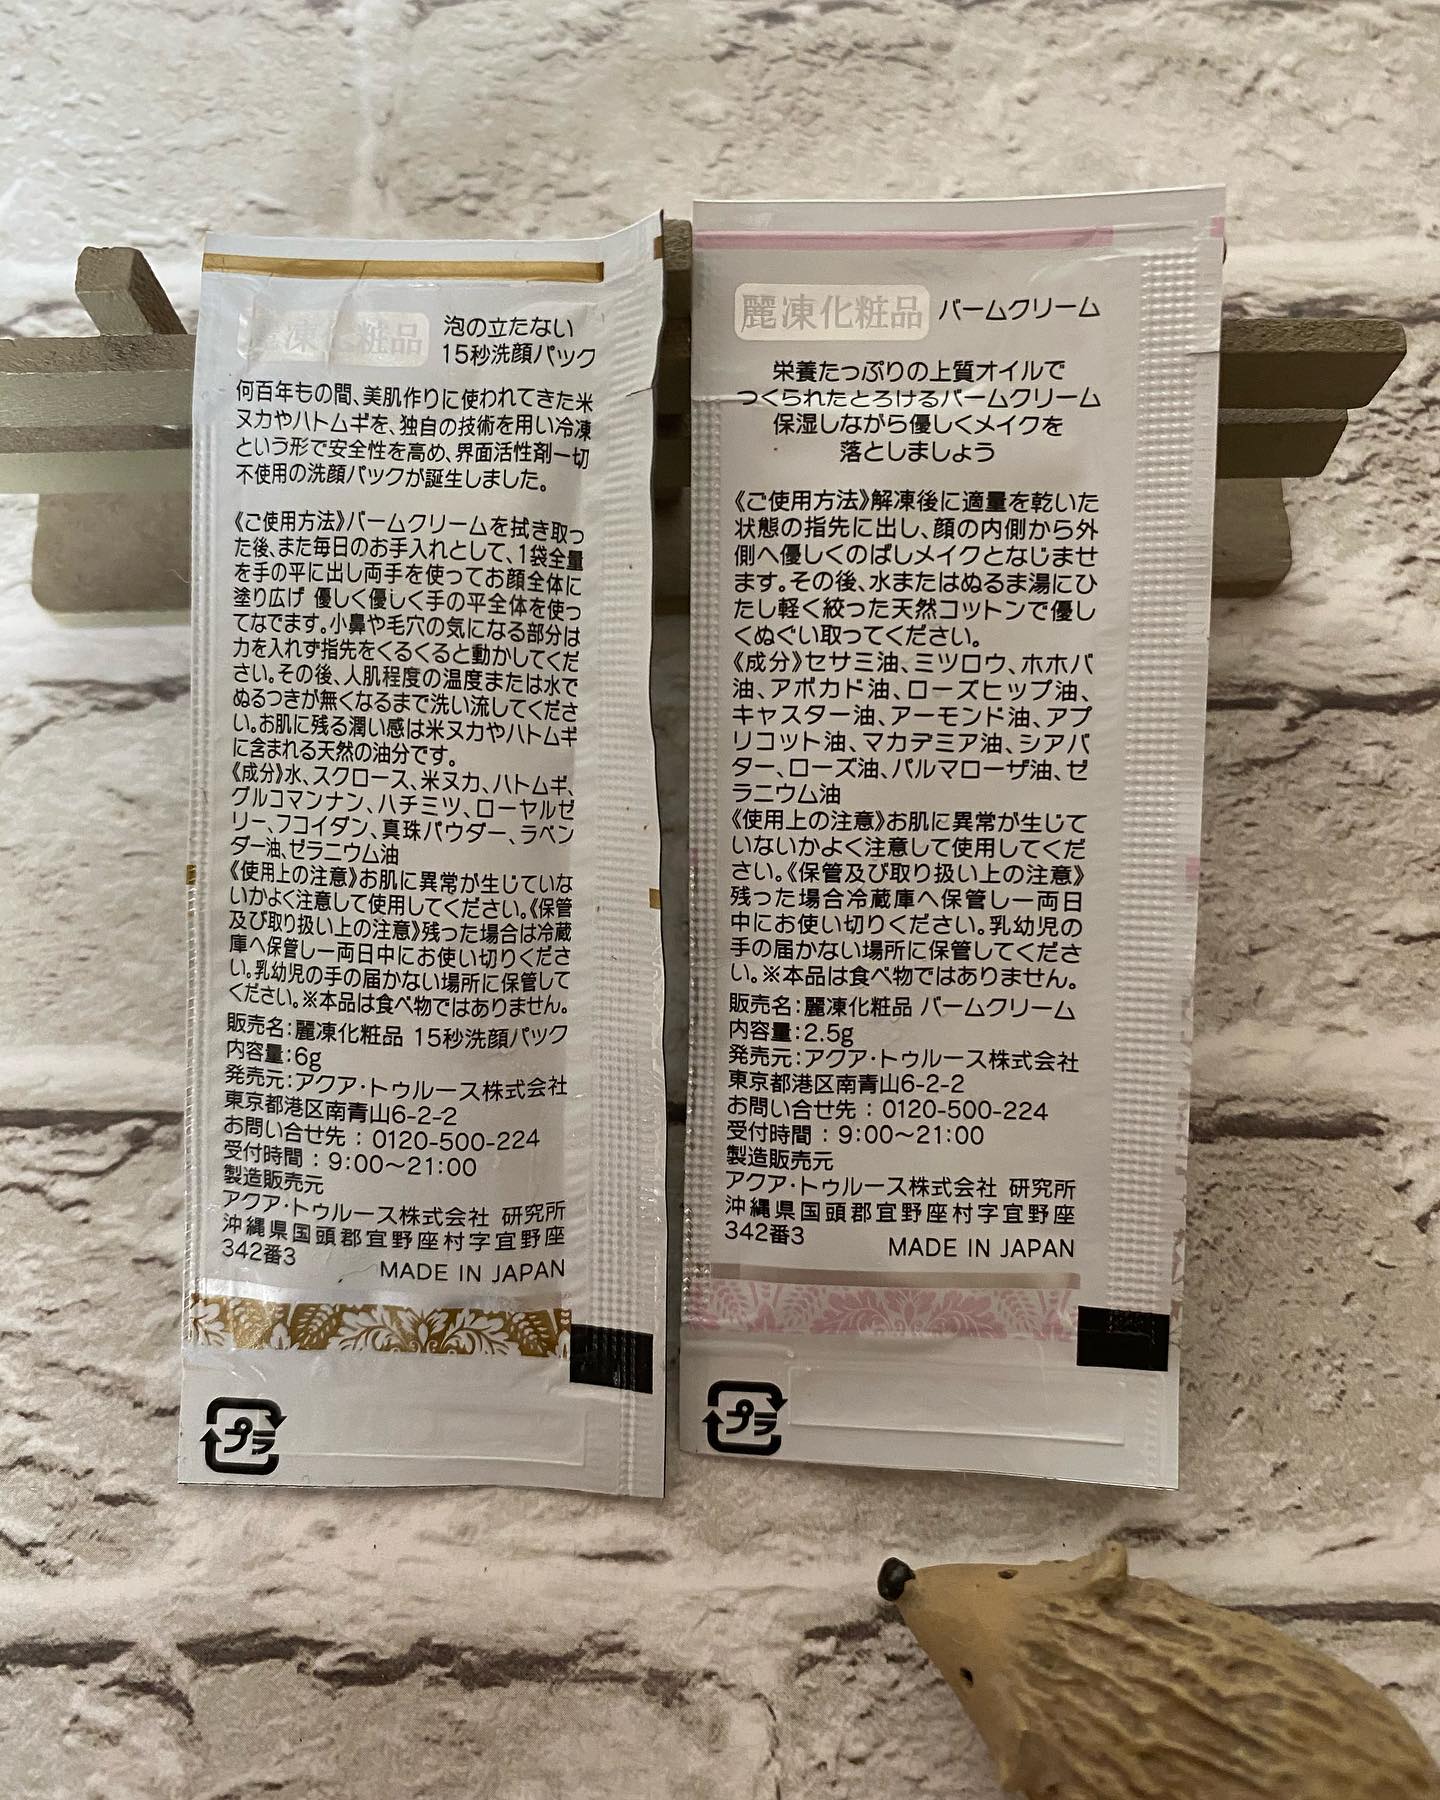 麗凍化粧品
泡の立たない
15秒洗顔パック
何百年もの間、美肌作りに使われてきた米
ヌカやハトムギを、独自の技術を用い冷凍
という形で安全性を高め、界面活性剤一切
不使用の洗顔パックが誕生しました。
《ご使用方法》バームクリームを拭き取っ
た後、また毎日のお手入れとして、1袋全量
を手の平に出し両手を使ってお顔全体に
塗り広げ 優しく優しく手の平全体を使っ
てなでます。小鼻や毛穴の気になる部分は
力を入れず指先をくるくると動かしてくだ
さい。その後、人肌程度の温度または水で
ぬるつきが無くなるまで洗い流してくださ
い。お肌に残る潤い感は米ヌカやハトムギ
に含まれる天然の油分です。
《成分》水、スクロース、米ヌカ、ハトムギ、
グルコマンナン、ハチミツ、ローヤルゼ
リー、フコイダン、真珠パウダー、ラベン
ダー油、ゼラニウム油
《使用上の注意》お肌に異常が生じていな
いかよく注意して使用してください。《保管
及び取り扱い上の注意》残った場合は冷蔵
庫へ保管し一両日中にお使い切りくださ
い。乳幼児の手の届かない場所に保管して
ください。※本品は食べ物ではありません。
販売名：麗凍化粧品 15秒洗顔パック
内容量：6g
発売元：アクア・トゥルース株式会社
東京都港区南青山6-2-2
お問い合せ先：0120-500-224
受付時間：9:00〜21:00
製造販売元
アクア・トゥルース株式会社 研究所
沖縄県国頭郡宜野座村字宜野座
342番3
MADE IN JAPAN
プラ
麗凍化粧品 バームクリーム
栄養たっぷりの上質オイルで
つくられたとろけるバームクリーム
保湿しながら優しくメイクを
落としましょう
《ご使用方法》解凍後に適量を乾いた
状態の指先に出し、顔の内側から外
側へ優しくのばしメイクとなじませ
ます。その後、水またはぬるま湯にひ
たし軽く絞った天然コットンで優し
くぬぐい取ってください。
《成分》セサミ油、ミツロウ、ホホバ
油、アボカド油、ローズヒップ油、
キャスター油、アーモンド油、アプ
リコット油、マカデミア油、シアバ
ター、ローズ油、パルマローザ油、ゼ
ラニウム油
《使用上の注意》お肌に異常が生じて
いないかよく注意して使用してくだ
さい。《保管及び取り扱い上の注意》
残った場合冷蔵庫へ保管し一両日
中にお使い切りください。乳幼児の
手の届かない場所に保管してくださ
い。※本品は食べ物ではありません。
販売名：麗凍化粧品 バームクリーム
内容量：2.5g
発売元：アクア・トゥルース株式会社
東京都港区南青山6-2-2
お問い合せ先：0120-500-224
受付時間：9:00〜21:00
製造販売元
アクア・トゥルース株式会社 研究所
沖縄県国頭郡宜野座村字宜野座
342番3
MADE IN JAPAN
プラ